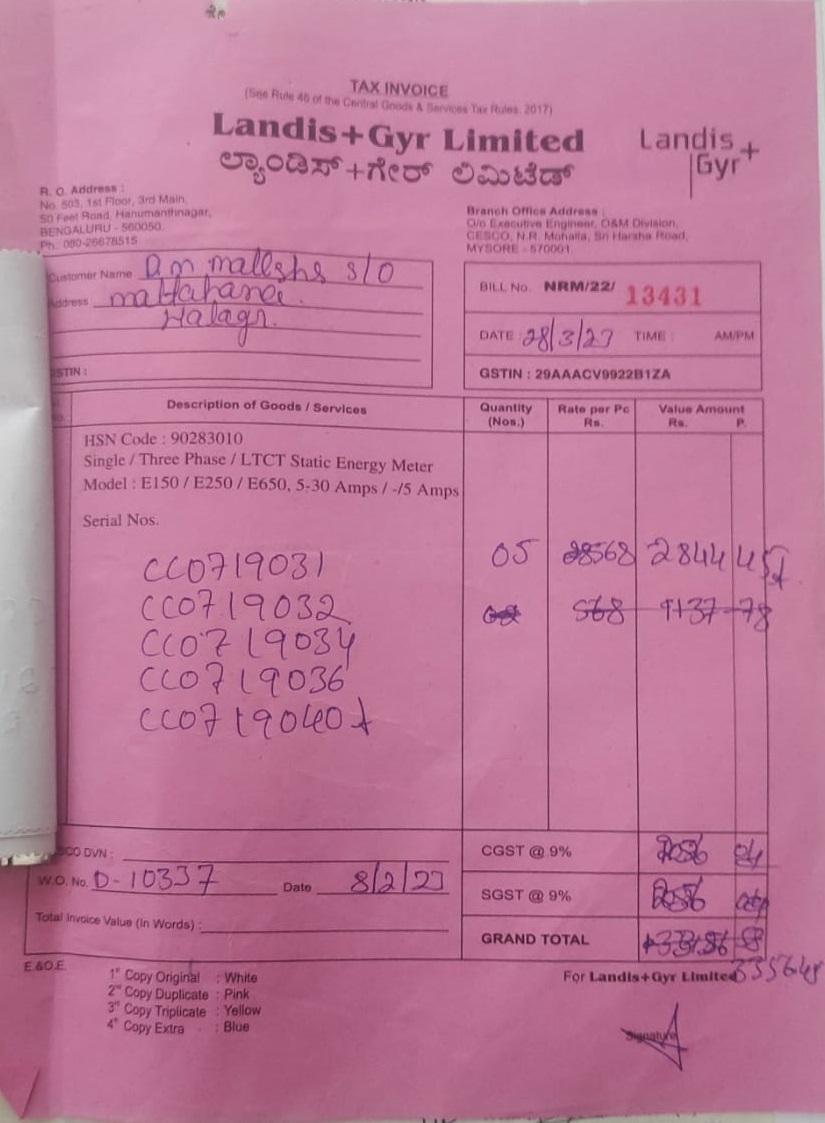 TAX INVOICE
(See Rule 46 of the Central Goods & Services Tax Rules, 2017)
Landis+Gyr Limited
ಲ್ಯಾಂಡಿಸ್+ಗೇರ್ ಲಿಮಿಟೆಡ್
Landis+
Gyr
R. O. Address :
No. 503, 1st Floor, 3rd Main,
50 Feet Road, Hanumanthnagar,
BENGALURU - 560050.
Ph: 080-26678515
Branch Office Address :
O/o Executive Engineer, O&M Division,
CESCO, N.R. Mohalla, Sri Harsha Road,
MYSORE - 570001.
Customer Name D M S/O
Address
BILL No. NRM/22/ 13431
DATE : 28/3/23 TIME : AM/PM
STIN :
GSTIN : 29AAACV9922B1ZA
Description of Goods / Services Quantity (Nos.) Rate per Pc Rs. Value Amount Rs. P.
HSN Code : 90283010
Single / Three Phase / LTCT Static Energy Meter
Model : E150 / E250 / E650, 5-30 Amps / -/5 Amps
Serial Nos.
CC0719031 05 568 2844 45
CC0719032 568 1137-78
CC0719034
CC0719036
CC0719040
CO DVN :
CGST @ 9%
W.O. No. D-10337 Date 8/2/23
SGST @ 9%
Total Invoice Value (In Words) :
GRAND TOTAL
E.&O.E.
1st Copy Original : White
2nd Copy Duplicate : Pink
3rd Copy Triplicate : Yellow
4th Copy Extra : Blue
For Landis+Gyr Limited
Signature